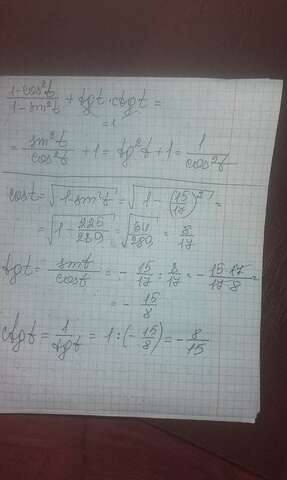 (1-cos²t)/(1-sin²t) + tgt · ctgt =
=1
= sin²t/cos²t + 1 = tg²t + 1 = 1/cos²t
cost = √(1-sin²t) = √(1-(15/17)²) =
= √(1-225/289) = √(64/289) = 8/17
tgt = sint/cost = -15/17 : 8/17 = -(15·17)/(17·8) =
= -15/8
ctgt = 1/tgt = 1:(-15/8) = -8/15